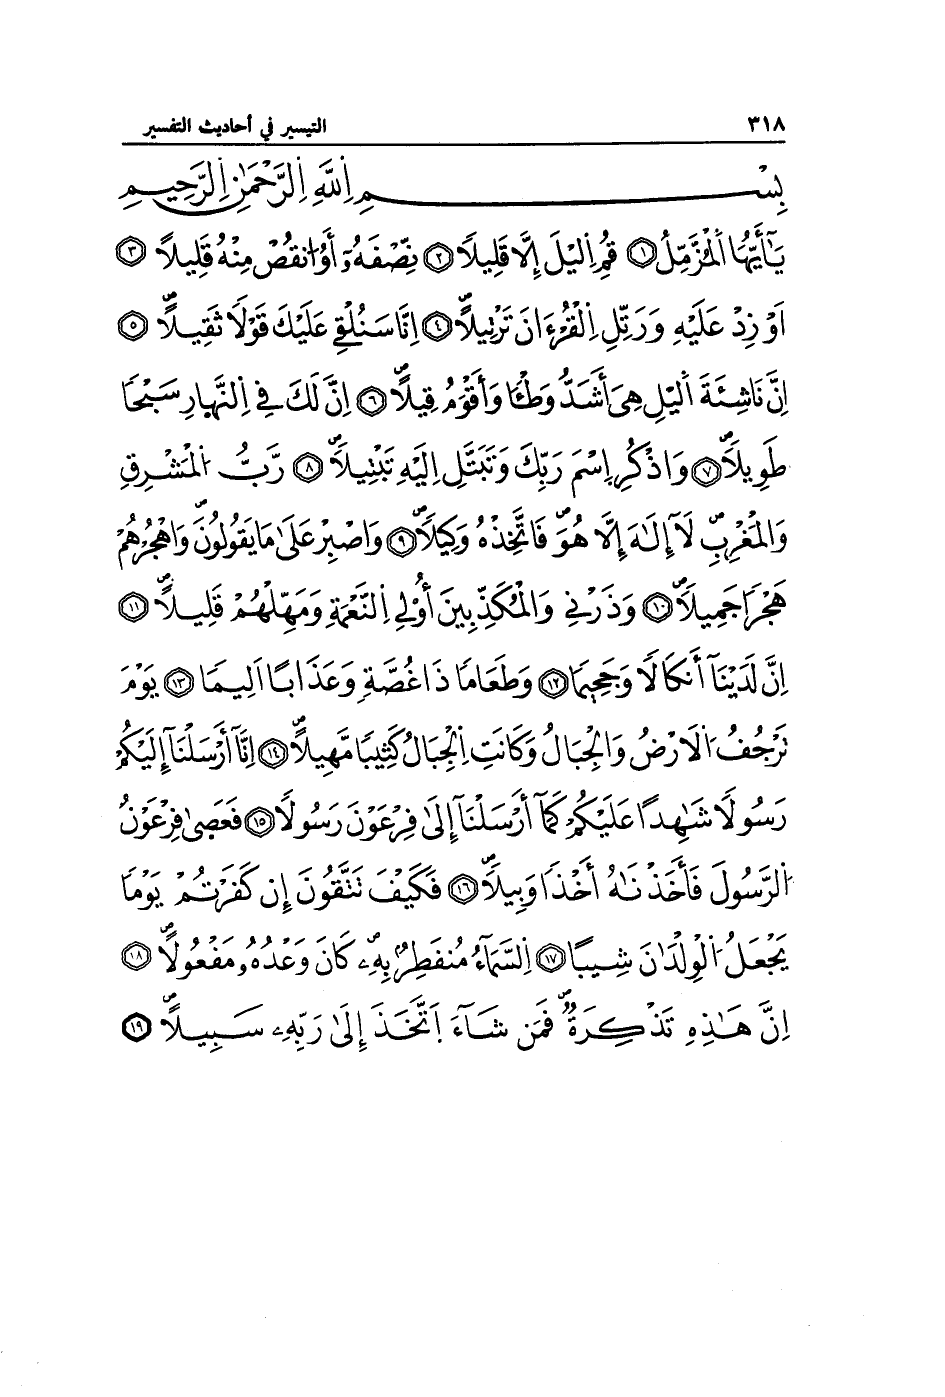 ٣١٨ التيسير في أحاديث التفسير
بِسْمِ اِ۬للَّهِ اِ۬لرَّحْمَٰنِ اِ۬لرَّحِيمِ
يَٰٓأَيُّهَا اَ۬لْمُزَّمِّلُ ١ قُمِ اِ۬ليْلَ إِلَّا قَلِيلاً ٢ نِّصْفَهُۥٓ أَوُ اُ۟نقُصْ مِنْهُ قَلِيلاً ٣
اَوْ زِدْ عَلَيْهِ وَرَتِّلِ اِ۬لْقُرْءَانَ تَرْتِيلاًۖ ٤ اِنَّا سَنُلْقِے عَلَيْكَ قَوْلاَ ثَقِيلاًۖ ٥
اِنَّ نَاشِئَةَ اَ۬ليْلِ هِيَ أَشَدُّ وَطْـٔاَ وَأَقْوَمُ قِيلاًۖ ٦ اِنَّ لَكَ فِے اِ۬لنَّهارِ سَبْحاَ
طَوِيلاًۖ ٧ وَاذْكُرِ اِسْمَ رَبِّكَ وَتَبَتَّلِ اِلَيْهِ تَبْتِيلاًۖ ٨ رَّبُّ اُ۬لْمَشْرِقِ
وَالْمَغْرِبِۖ لَآ إِلَٰهَ إِلَّا هُوَۖ فَاتَّخِذْهُ وَكِيلاًۖ ٩ وَاصْبِرْ عَلَىٰ مَا يَقُولُونَۖ وَاهْجُرْهُمْ
هَجْراَ جَمِيلاًۖ ١٠ وَذَرْنِے وَالْمُكَذِّبِينَ أُوْلِے اِ۬لنَّعْمَةِ وَمَهِّلْهُمْ قَلِيلاًۖ ١١
اِنَّ لَدَيْنَآ أَنكَالاَ وَجَحِيماَ ١٢ وَطَعَاماَ ذَا غُصَّةٍ وَعَذَاباً اَلِيماَ ١٣ يَوْمَ
تَرْجُفُ اُ۬لَارْضُ وَالْجِبَالُ وَكَانَتِ اِ۬لْجِبَالُ كَثِيباَ مَّهِيلاًۖ ١٤ اِنَّآ أَرْسَلْنَآ إِلَيْكُمْ
رَسُولاَ شَٰهِداً عَلَيْكُمْ كَمَآ أَرْسَلْنَآ إِلَىٰ فِرْعَوْنَ رَسُولاً ١٥ فَعَصَىٰ فِرْعَوْنُ
اُ۬لرَّسُولَ فَأَخَذْنَٰهُ أَخْذاَ وَبِيلاًۖ ١٦ فَكَيْفَ تَتَّقُونَ إِن كَفَرْتُمْ يَوْماَ
يَجْعَلُ اُ۬لْوِلْدَٰنَ شِيباً ١٧ اِ۬لسَّمَآءُ مُنفَطِرٌۢ بِهِۦۖ كَانَ وَعْدُهُۥ مَفْعُولاًۖ ١٨
اِنَّ هَٰذِهِۦ تَذْكِرَةٌۖ فَمَن شَآءَ اَ۪تَّخَذَ إِلَىٰ رَبِّهِۦ سَبِيلاًۖ ١٩